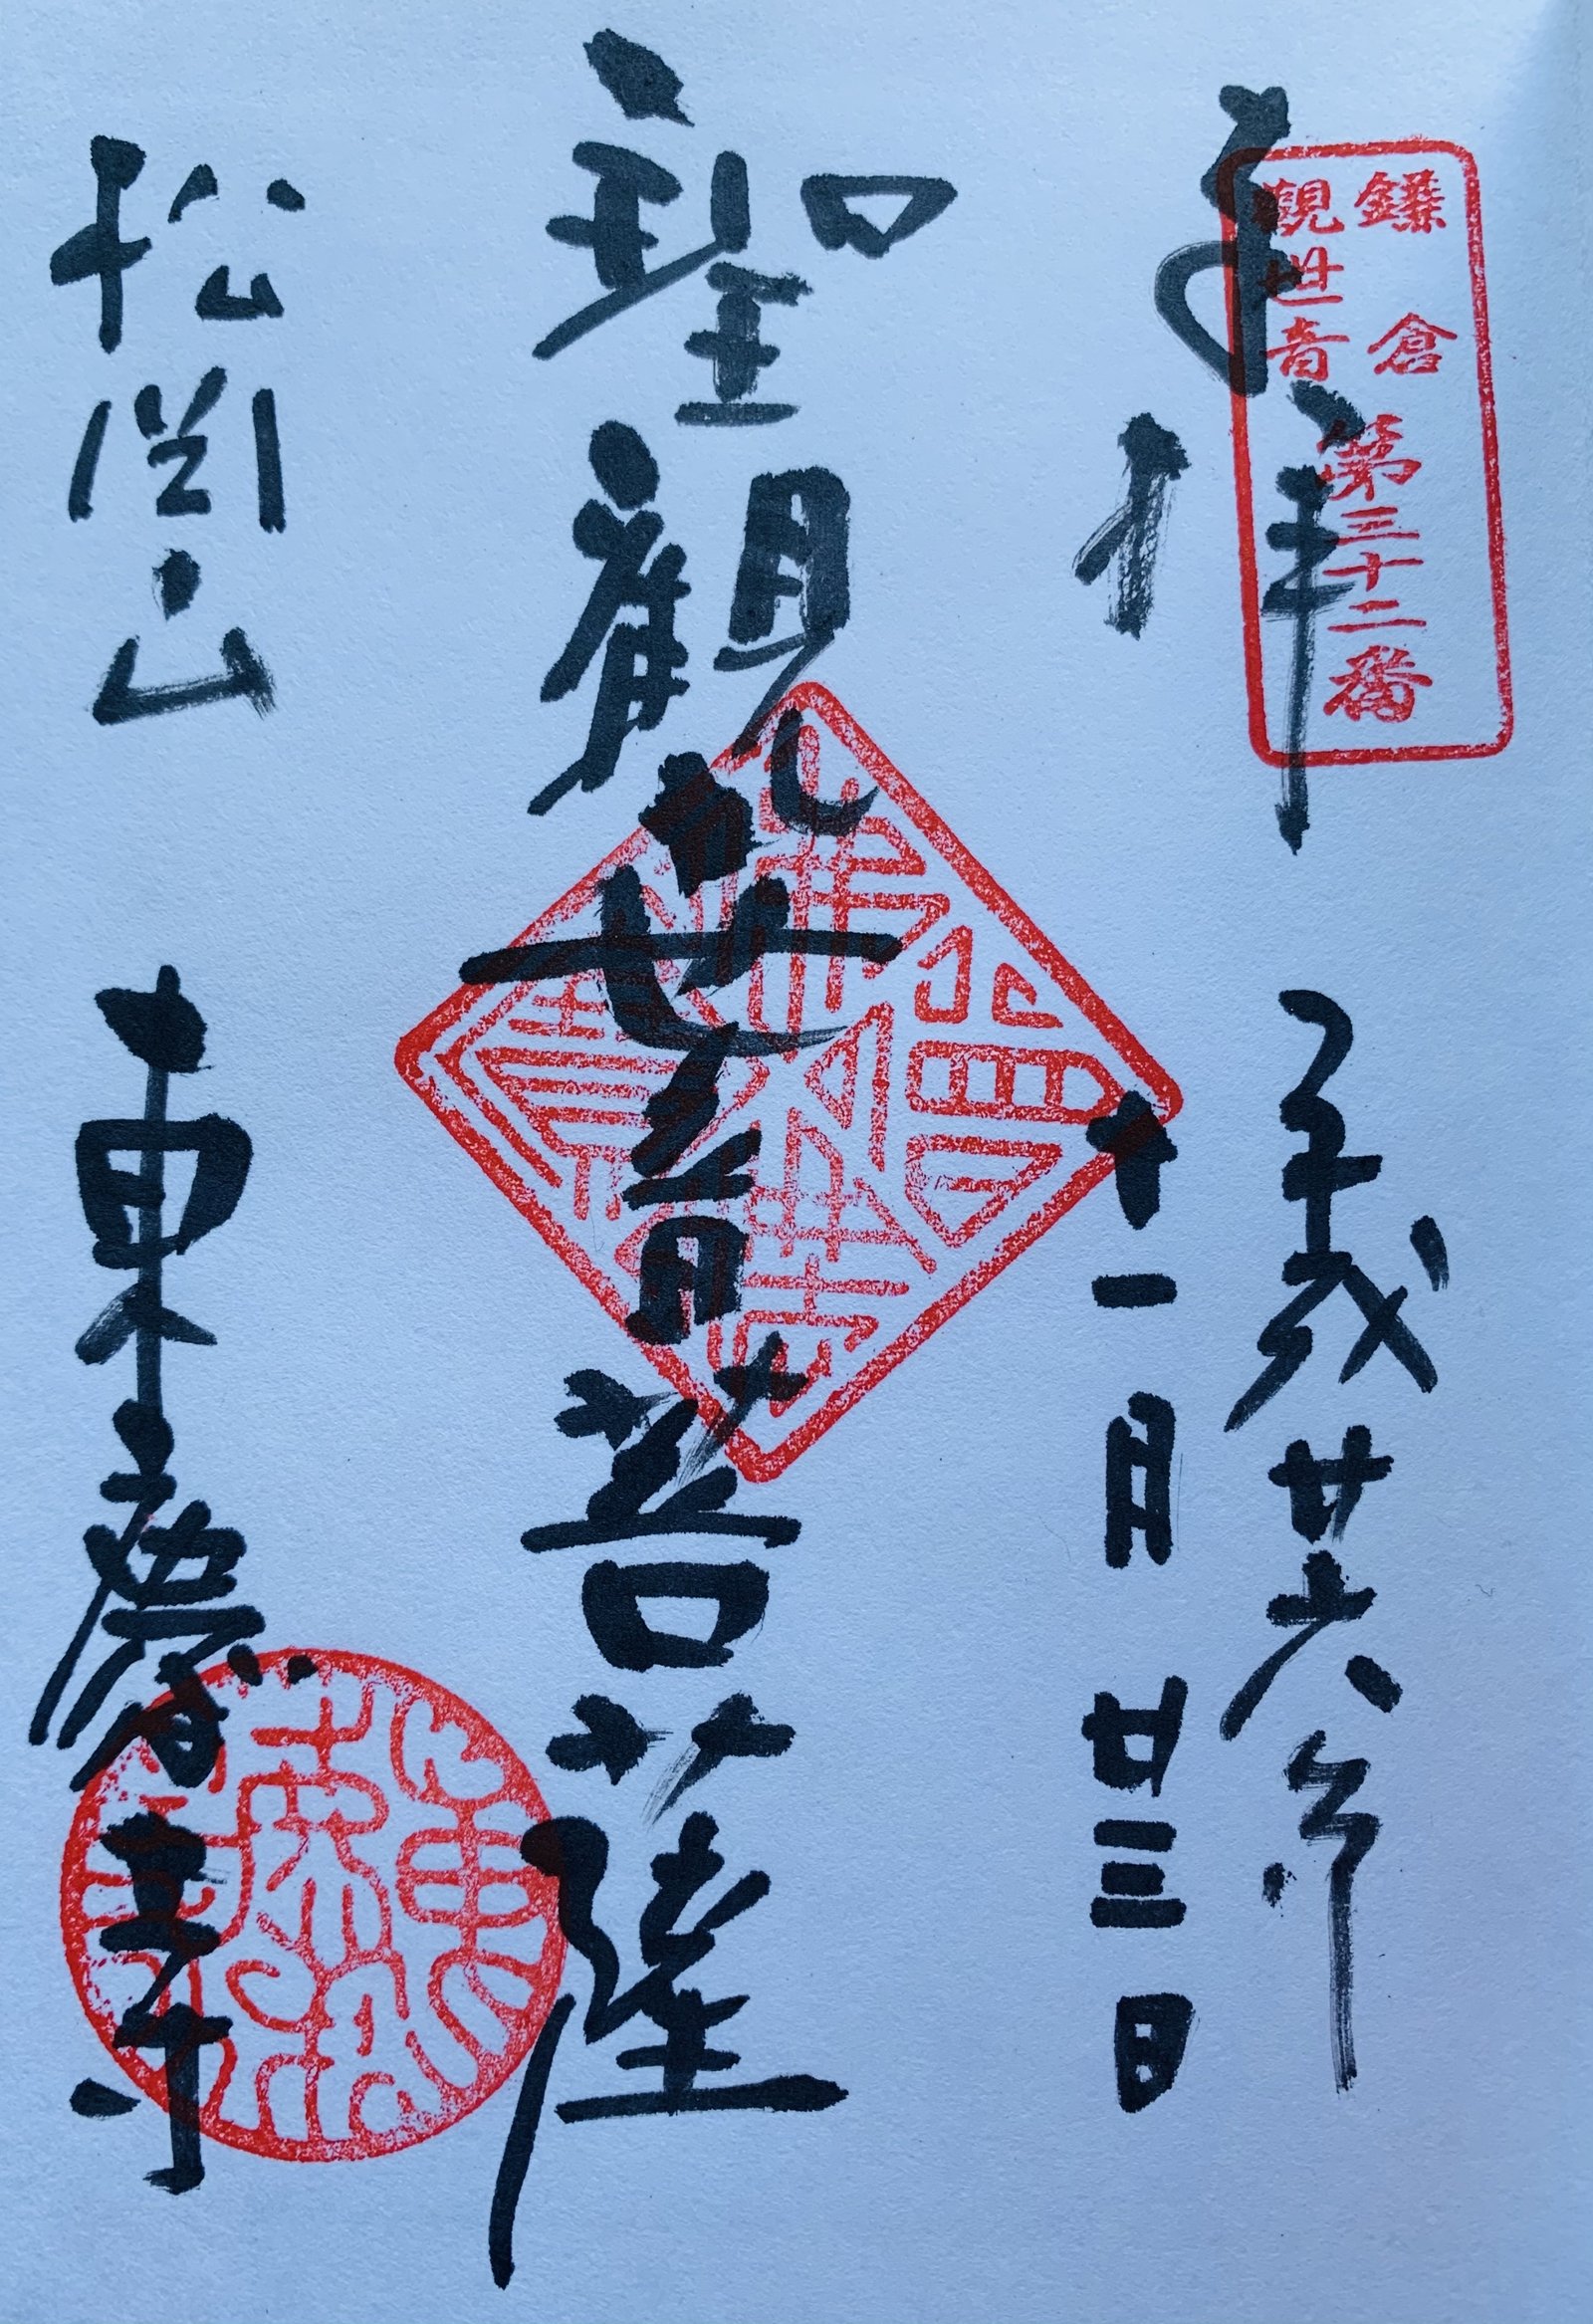 鎌倉
觀世音
第三十二番
奉拝
平成廿六年
十一月廿三日
聖観世音菩薩
松岡山
東慶寺